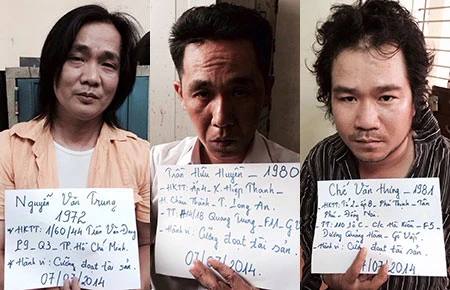 Nguyễn Văn Trung
1972
* HKTT: 1/60/44 Trần Văn Đang
P9 - Q3 - TP. Hồ Chí Minh.
* Hành vi: Cưỡng đoạt tài sản.
07/07/2014
Trần Hữu Huyền - 1980
HKTT: Ấp 4 - X. Hiệp Thạnh -
H. Châu Thành - T. Long An.
TT: Quang Trung - F11 - GV
Hành vi: Cưỡng đoạt tài sản.
07/07/2014
Văn Hưng - 1981
HKTT: Tổ 2 - Phú Thịnh - Tân
Phú - Đồng Nai.
TT: C - F5 -
Dương Quảng Hàm - Gò Vấp.
Hành vi: Cưỡng đoạt tài sản.
07/07/2014